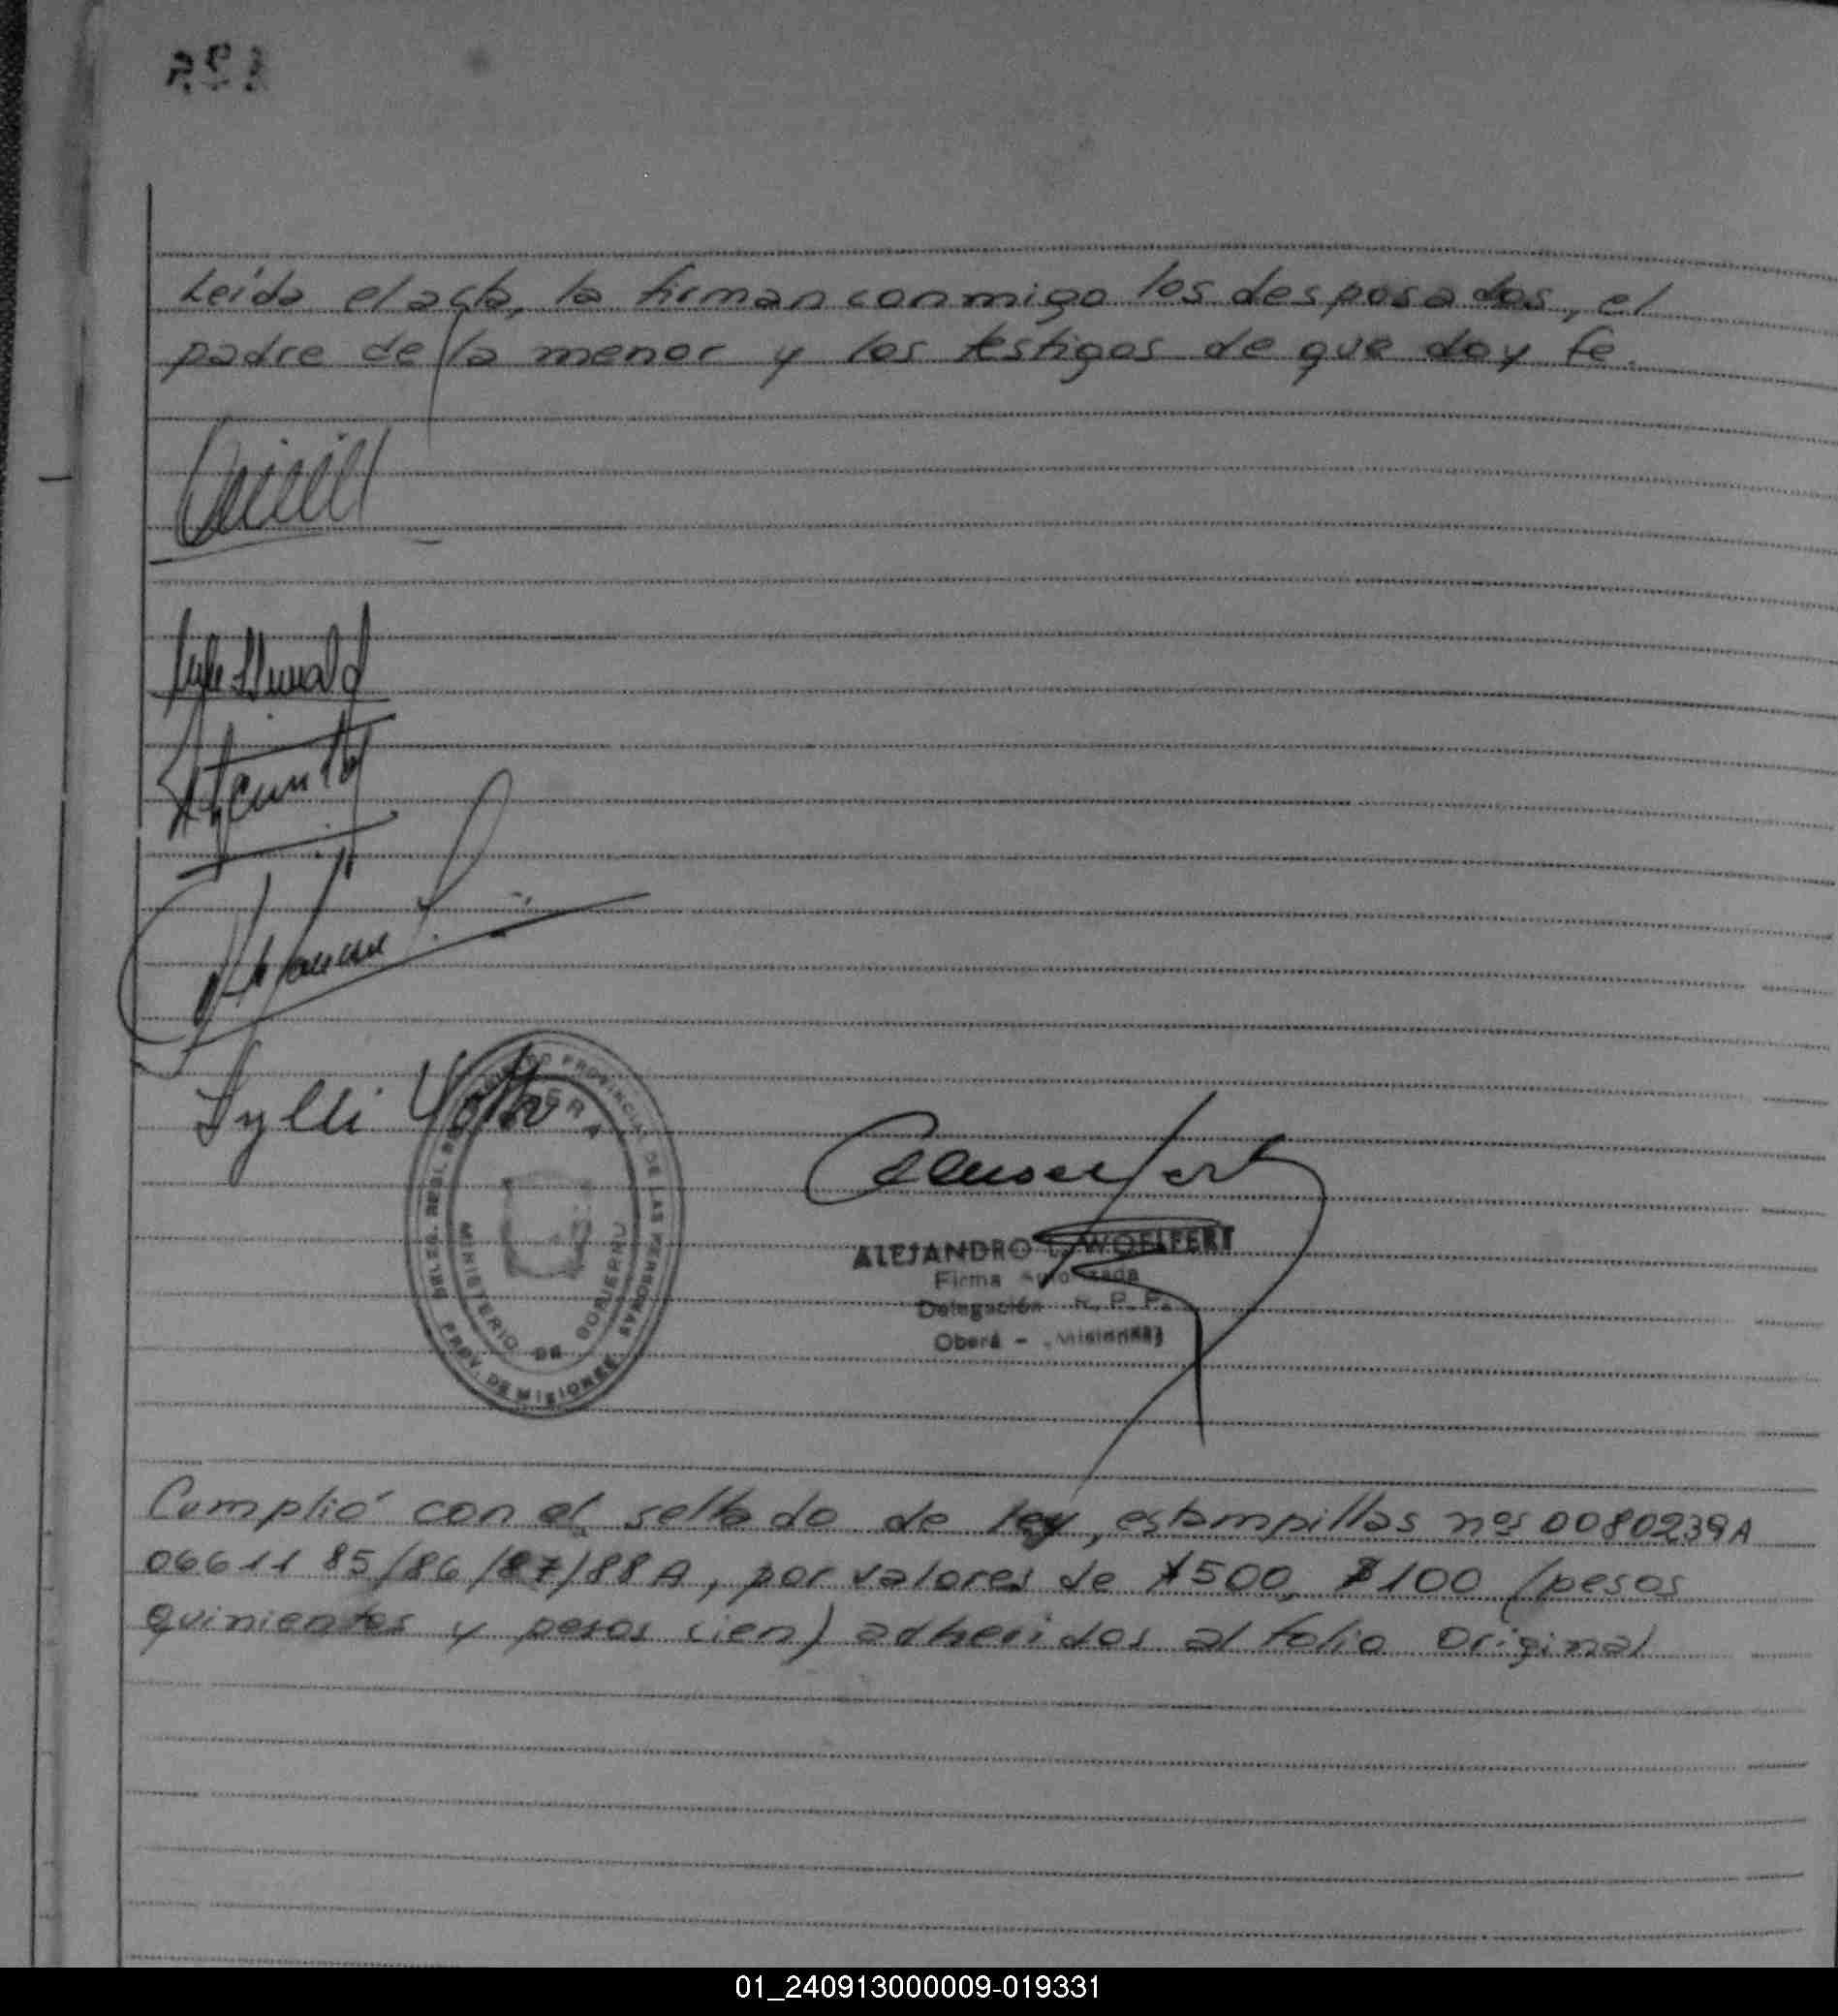 Leída el acta, la firman conmigo los desposados, el
padre de la menor y los testigos de que doy fe.
Sylli
ALEJANDRO L. WOELFERT
Firma Autorizada
Delegación R. P. P.
Oberá - Misiones
PROVINCIAL DE LAS PERSONAS
PROV. DE MISIONES
MINISTERIO DE GOBIERNO
Cumplió con el sellado de ley, estampillas nos 0080239A
0661185/86/87/88A, por valores de $500, $100 (pesos
quinientos y pesos cien) adheridos al folio original
01_240913000009-019331